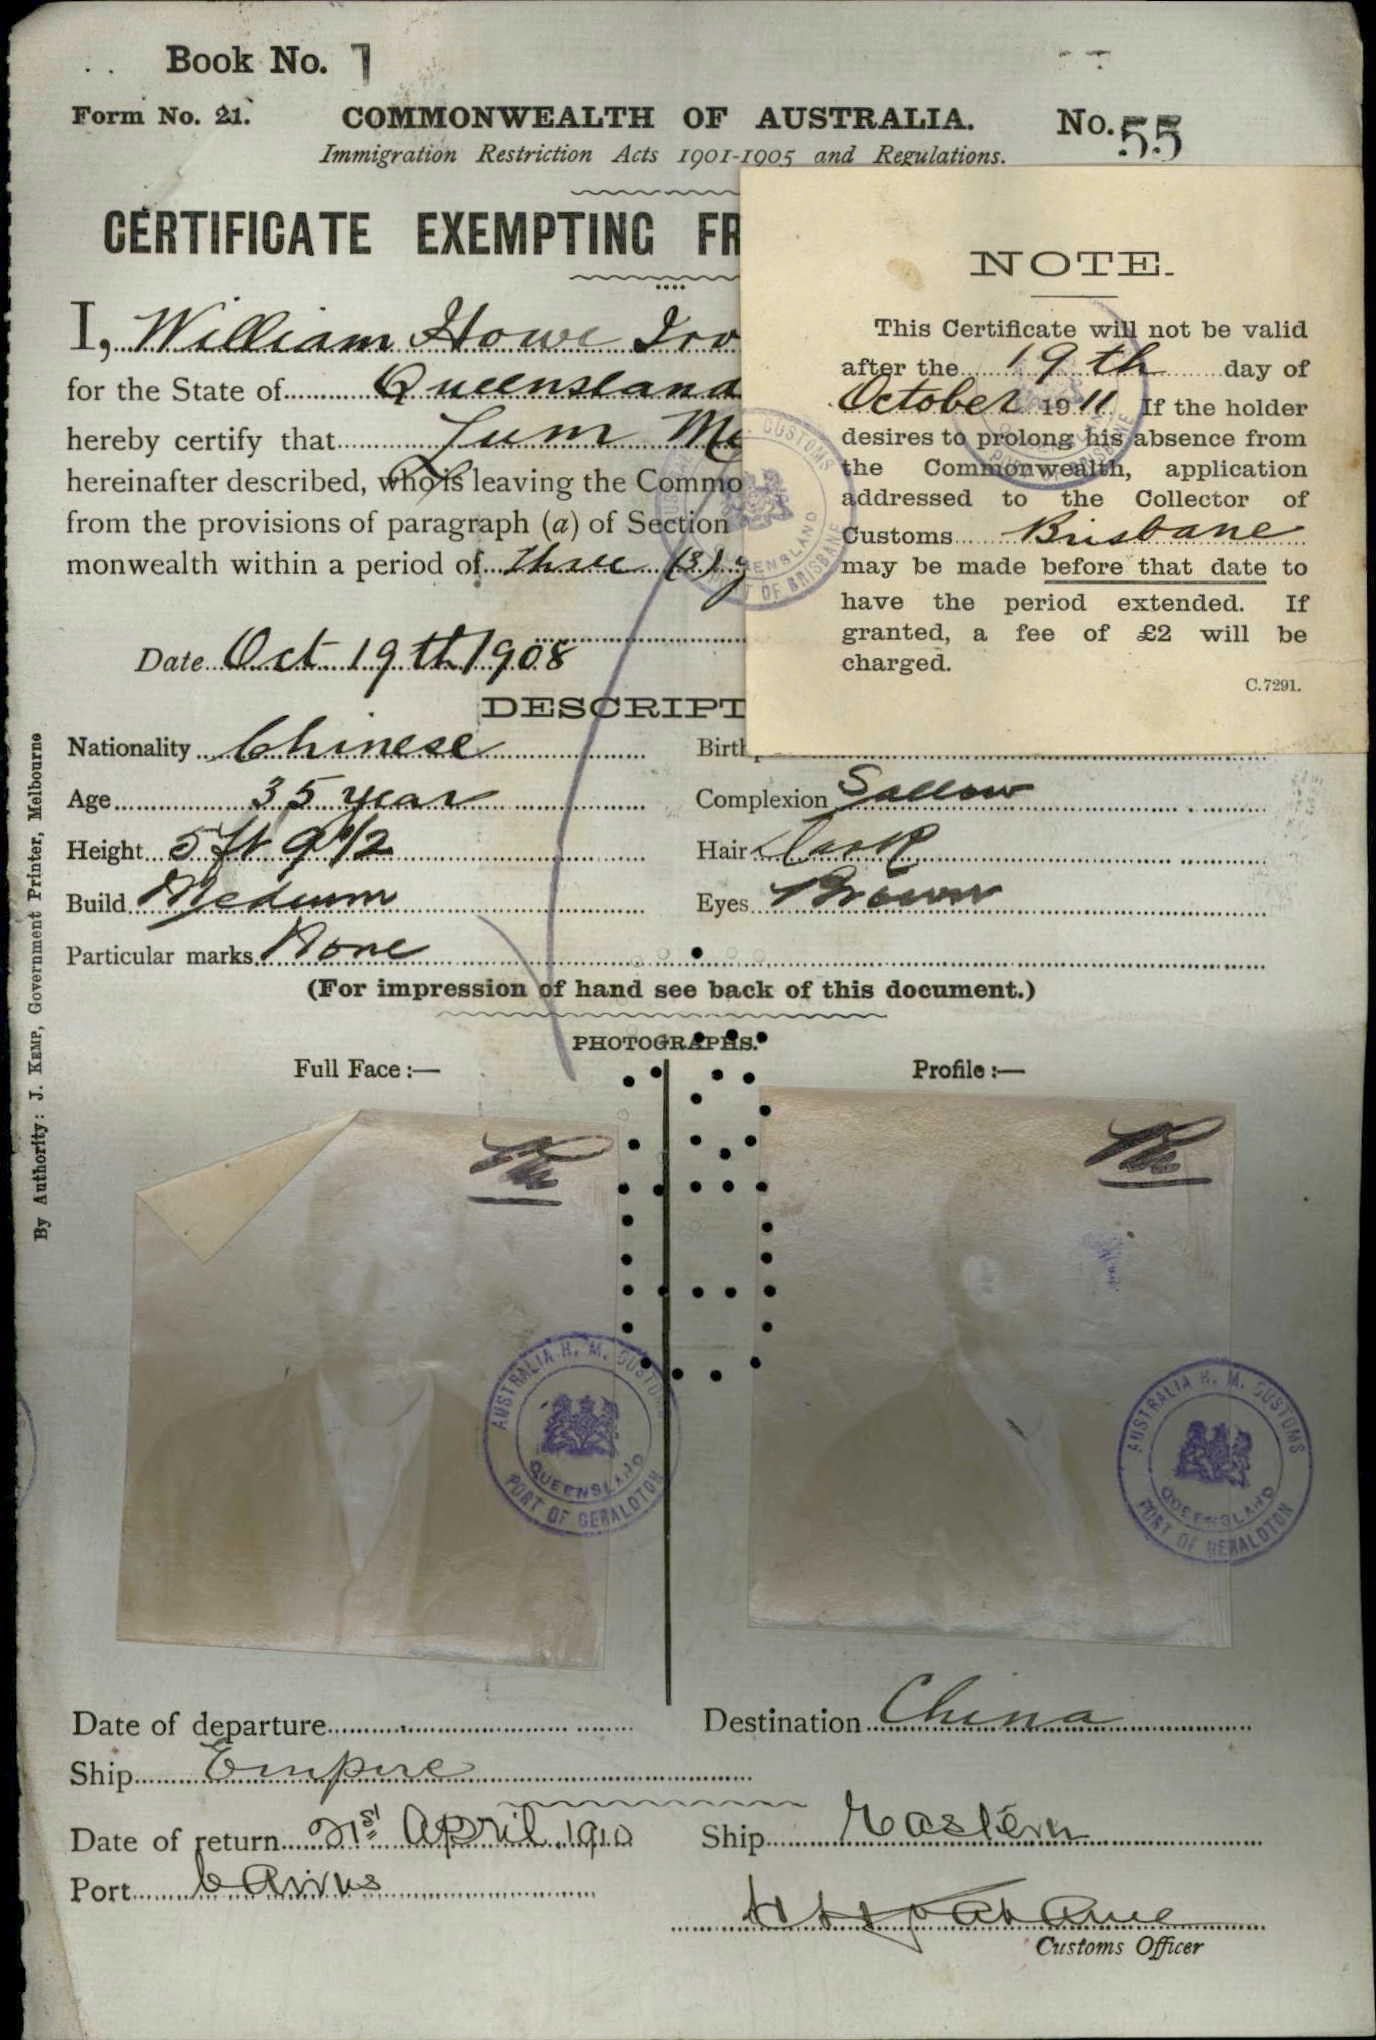 Book No. 7
Form No. 21.
COMMONWEALTH OF AUSTRALIA.
No. 55
Immigration Restriction Acts 1901-1905 and Regulations.
CERTIFICATE EXEMPTING FR
I, William Howe Irv
for the State of Queensland
hereby certify that Lum
hereinafter described, who is leaving the Commo
from the provisions of paragraph (a) of Section
monwealth within a period of three (3) y
Date Oct 19th 1908
NOTE.
This Certificate will not be valid
after the 19th day of
October 1911 If the holder
desires to prolong his absence from
the Commonwealth, application
addressed to the Collector of
Customs Brisbane
may be made before that date to
have the period extended. If
granted, a fee of £2 will be
charged.
C.7291.
DESCRIPT
Nationality Chinese
Birth
Age 35 year
Complexion Sallow
Height 5 ft 9 1/2
Hair Dark
Build Medium
Eyes Brown
Particular marks None
(For impression of hand see back of this document.)
PHOTOGRAPHS.
Full Face :—
Profile :—
AUSTRALIA H. M. CUSTOMS
QUEENSLAND
PORT OF GERALDTON
AUSTRALIA H. M. CUSTOMS
QUEENSLAND
PORT OF GERALDTON
Date of departure
Destination China
Ship Empire
Date of return 21st April 1910
Ship Eastern
Port Cairns
Customs Officer
By Authority: J. KEMP, Government Printer, Melbourne